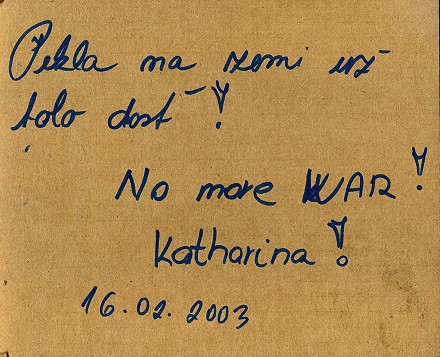 Pekla na zemi už
bolo dosť!
No more WAR!
Katharina!
16.02.2003